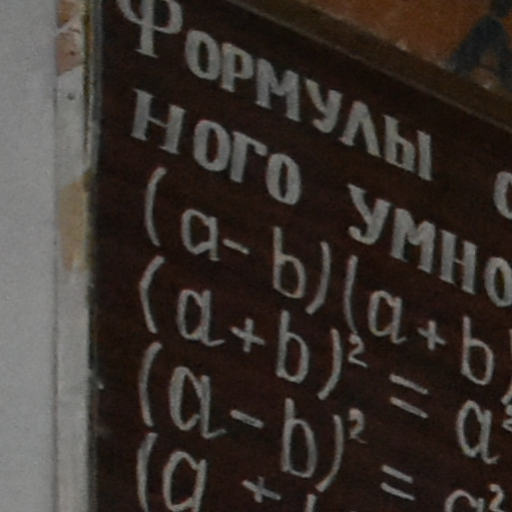 Формулы с
ного умно
(a-b)(a+b)
(a+b)² = a²
(a-b)² = a²
(a +